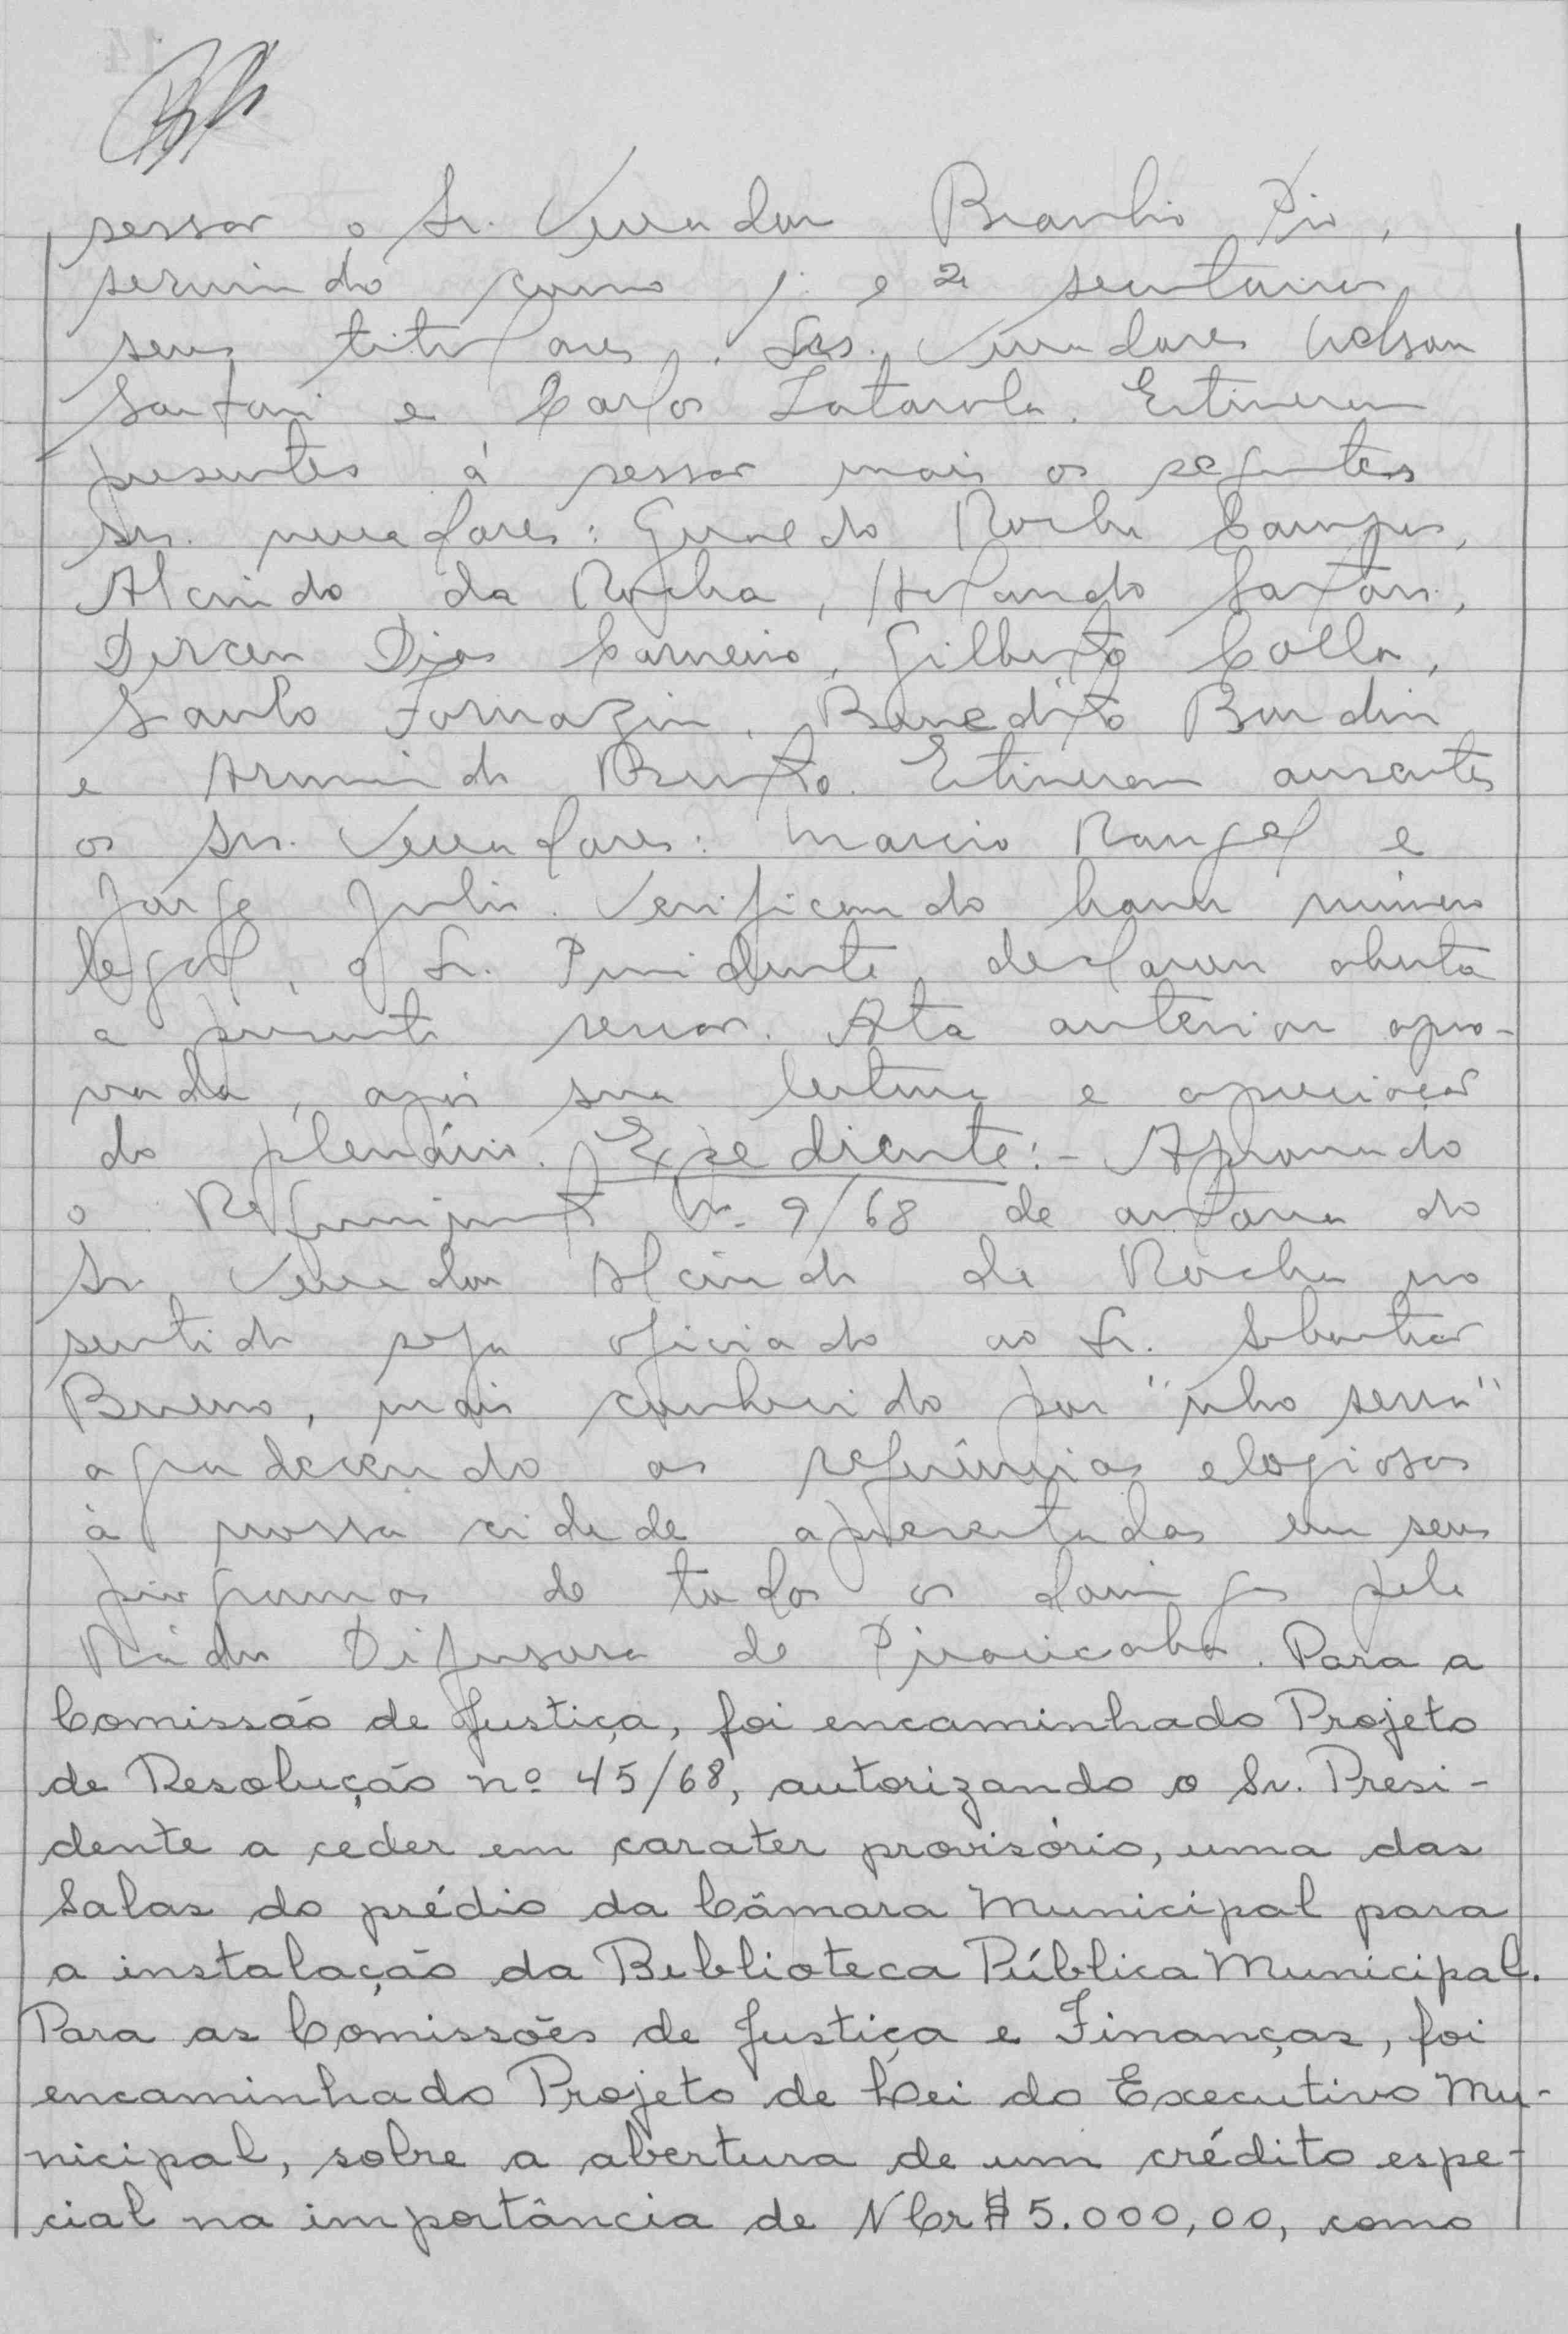 sessão o Sr. Vereador Braulio Pio,
servindo como 1º e 2º secretarios
seus titulares, Srs. Vereadores Nelson
Santari e Carlos Zatarola. Estiveram
presentes à sessão mais os seguintes
Srs. vereadores: Geraldo Rocha Campos,
Alcindo da Rocha, Sartori,
Dirceu Dias Carneiro, Gilberto Colla,
Santo Fornazin, Benedito Bordin
e Armindo. Estiveram ausentes
os Srs. Vereadores: Marcio Rangel e
Jorge Julio. Verificando haver número
legal, o Sr. Presidente, declarou aberta
a presente sessão. Ata anterior apro-
vada, após sua leitura e apreciação
do plenário. Expediente:- Aprovado
o Requerimento Nº 9/68 de autoria do
Sr. Vereador Alcindo da Rocha no
sentido seja oficiado ao Sr. Sebastião
Bueno, mais conhecido por "nho serra"
agradecendo as referências elogiosas
à nossa cidade apresentadas em seus
programas de todos os domingos pela
Rádio Difusora de Piracicaba. Para a
Comissão de Justiça, foi encaminhado Projeto
de Resolução nº 45/68, autorizando o Sr. Presi-
dente a ceder em carater provisório, uma das
Salas do prédio da Câmara Municipal para
a instalação da Biblioteca Pública Municipal.
Para as Comissões de Justiça e Finanças, foi
encaminhado Projeto de Lei do Executivo Mu-
nicipal, sobre a abertura de um crédito espe-
cial na importância de NCr$ 5.000,00, como